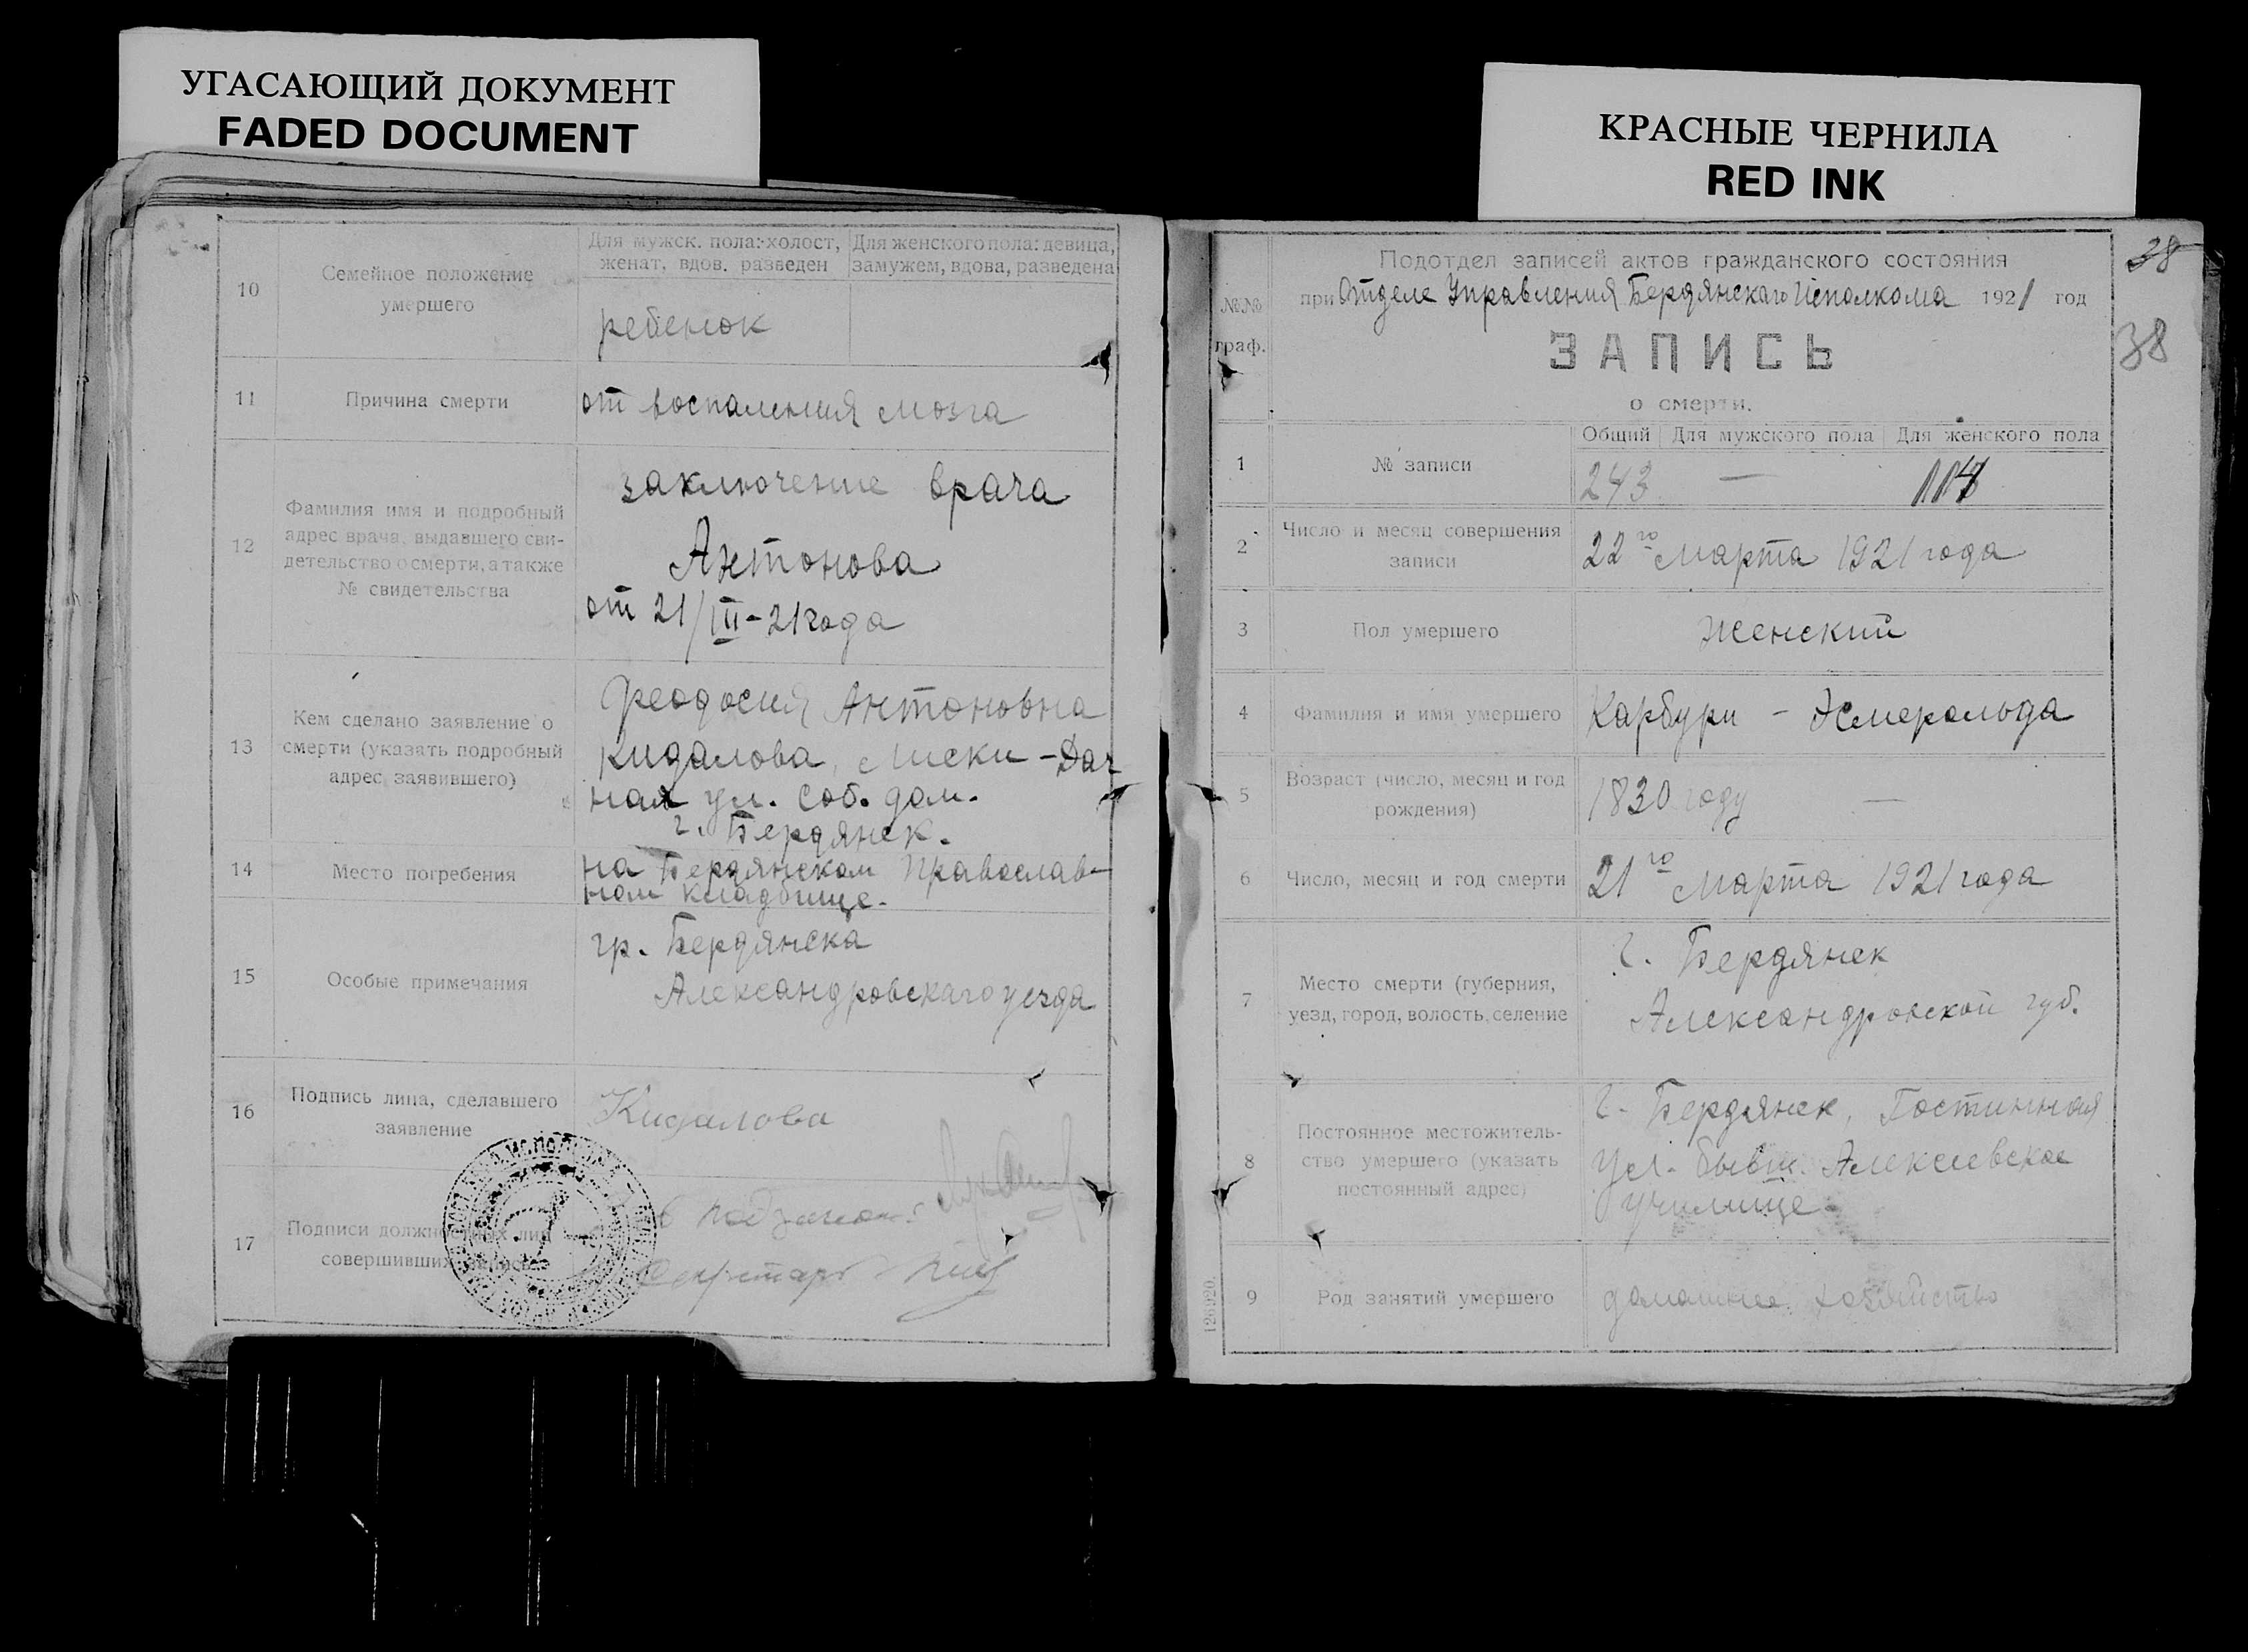 УГАСАЮЩИЙ ДОКУМЕНТ
FADED DOCUMENT
КРАСНЫЕ ЧЕРНИЛА
RED INK
10
Семейное положение
умершего
Для мужск. пола: холост,
женат, вдов. разведен
Для женского пола: девица,
замужем, вдова, разведена
ребенок
11
Причина смерти
от воспаления мозга
12
Фамилия имя и подробный
адрес врача, выдавшего сви-
детельство о смерти, а также
№ свидетельства
заключение врача
Антонова
от 21/III-21 года
13
Кем сделано заявление о
смерти (указать подробный
адрес заявившего)
Феодосия Антоновна
Кидалова, Лиски - Дач
ная ул. соб. дом.
г. Бердянск.
14
Место погребения
на Бердянском Православ-
ном кладбище.
15
Особые примечания
гр. Бердянска
Александровскаго уезда
16
Подпись лица, сделавшего
заявление
Кидалова
17
Подписи должностных лиц
совершивших запись
Секретарь
38
38
№№
граф.
Подотдел записей актов гражданского состояния
при Отделе Управления Бердянскаго Исполкома 1921 год
ЗАПИСЬ
о смерти.
1
№ записи
Общий
Для мужского пола
Для женского пола
243
—
2
Число и месяц совершения
записи
22го Марта 1921 года
3
Пол умершего
Женский
4
Фамилия и имя умершего
Карбури - Эсмеральда
5
Возраст (число, месяц и год
рождения)
1830 году —
6
Число, месяц и год смерти
21го Марта 1921 года
7
Место смерти (губерния,
уезд, город, волость, селение
г. Бердянск
Александровской губ.
8
Постоянное местожитель-
ство умершего (указать
постоянный адрес)
г. Бердянск, Гостинная
ул. бывш. Алексеевское
училище.
9
Род занятий умершего
домашнее хозяйство
126920.